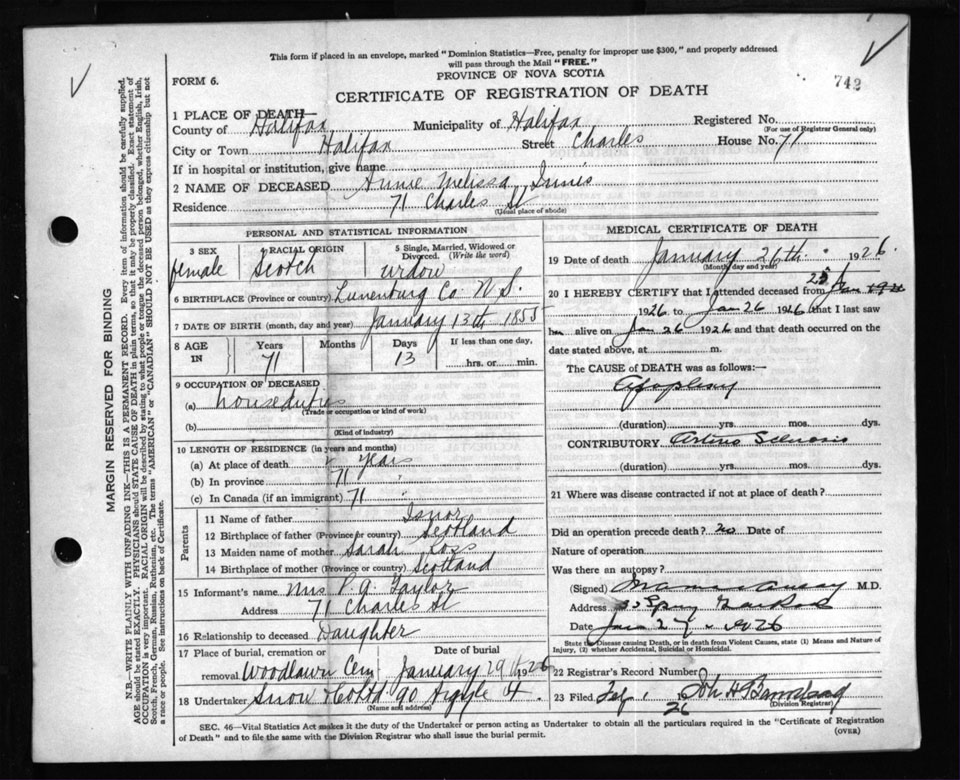 This form if placed in an envelope, marked "Dominion Statistics—Free, penalty for improper use $300," and properly addressed
will pass through the Mail "FREE."
FORM 6.
PROVINCE OF NOVA SCOTIA
742
CERTIFICATE OF REGISTRATION OF DEATH
1 PLACE OF DEATH—
County of Halifax Municipality of Halifax Registered No.
(For use of Registrar General only)
City or Town Halifax Street Charles House No. 71
If in hospital or institution, give name
2 NAME OF DECEASED Annie Melissa Innis
Residence 71 Charles St
(Usual place of abode)
PERSONAL AND STATISTICAL INFORMATION
3 SEX female
4 RACIAL ORIGIN Scotch
5 Single, Married, Widowed or Divorced. (Write the word) widow
6 BIRTHPLACE (Province or country) Lunenburg Co. N.S.
7 DATE OF BIRTH (month, day and year) January 13th 1855
8 AGE IN Years 71 Months Days 13 If less than one day, hrs. or min.
9 OCCUPATION OF DECEASED
(a) houseduties
(Trade or occupation or kind of work)
(b)
(Kind of industry)
10 LENGTH OF RESIDENCE (in years and months)
(a) At place of death years
(b) In province 71 "
(c) In Canada (if an immigrant) 71 "
Parents
11 Name of father Isnor
12 Birthplace of father (Province or country) Scotland
13 Maiden name of mother Sarah Ross
14 Birthplace of mother (Province or country) Scotland
15 Informant's name Mrs P. A. Taylor
Address 71 Charles St
16 Relationship to deceased Daughter
17 Place of burial, cremation or removal Woodlawn Cem
Date of burial January 29th 1926
18 Undertaker Snow & Co Ltd 90 Argyle St.
(Name and address)
MEDICAL CERTIFICATE OF DEATH
19 Date of death January 26th 1926
(Month, day and year)
20 I HEREBY CERTIFY that I attended deceased from 25 Jan
1926 to Jan 26 1926 that I last saw
her alive on Jan 26 1926 and that death occurred on the
date stated above, at m.
The CAUSE OF DEATH was as follows:—
Apoplexy
(duration) yrs. mos. dys.
CONTRIBUTORY Arterio Sclerosis
(duration) yrs. mos. dys.
21 Where was disease contracted if not at place of death?
Did an operation precede death? no Date of
Nature of operation
Was there an autopsy?
(Signed) M.D.
Address Spring
Date Jan 27 1926
State the Disease causing Death, or in death from Violent Causes, state (1) Means and Nature of
Injury, (2) whether Accidental, Suicidal or Homicidal.
22 Registrar's Record Number
23 Filed 1926 John H
(Division Registrar)
SEC. 46—Vital Statistics Act makes it the duty of the Undertaker or person acting as Undertaker to obtain all the particulars required in the "Certificate of Registration
of Death" and to file the same with the Division Registrar who shall issue the burial permit.
(OVER)
MARGIN RESERVED FOR BINDING
N.B.—WRITE PLAINLY WITH UNFADING INK—THIS IS A PERMANENT RECORD. Every item of information should be carefully supplied.
AGE should be stated EXACTLY. PHYSICIANS should STATE CAUSE OF DEATH in plain terms, so that it may be properly classified. Exact statement of
OCCUPATION is very important. RACIAL ORIGIN will be described by stating to what people or tongue the deceased person belonged, whether English, Irish,
Scotch, French, German, Russian, Ruthenian, etc. The terms "AMERICAN" or "CANADIAN" SHOULD NOT BE USED as they express citizenship but not
a race or people. See instructions on back of Certificate.